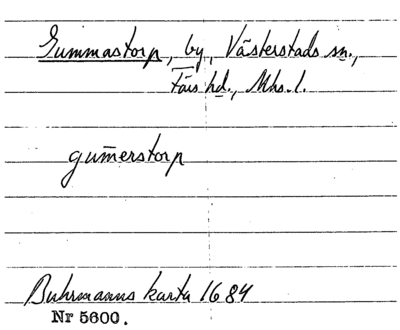 Gummastorp, by, Västerstads sn.,
Färs hd., Mhs. l.
gum̄erstorp
Buhrmanns karta 1684
Nr 5600.